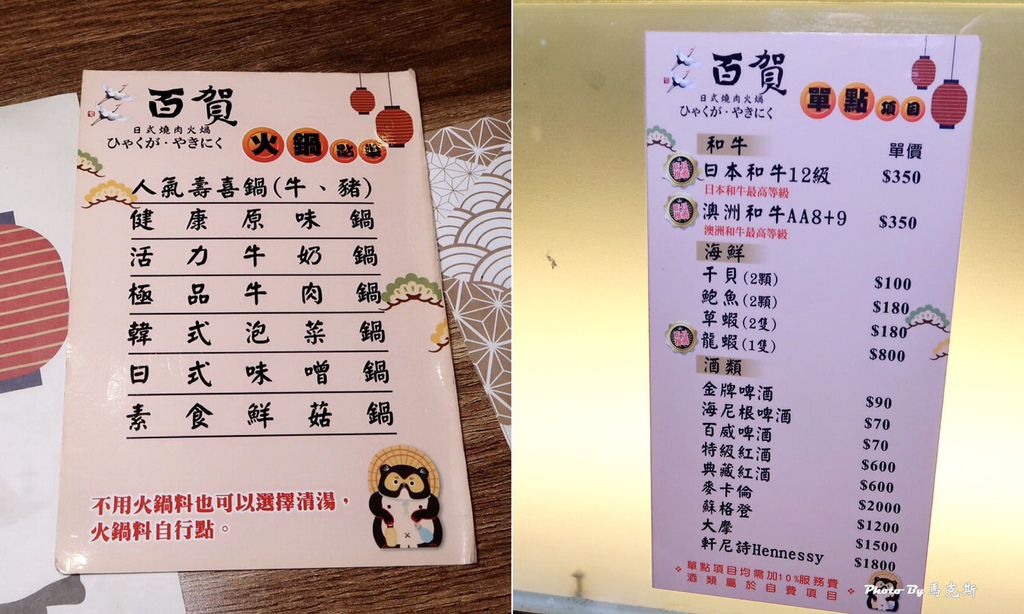 百賀
日式燒肉火鍋
ひゃくが・やきにく
火鍋點單
人氣壽喜鍋(牛、豬)
健康原味鍋
活力牛奶鍋
極品牛肉鍋
韓式泡菜鍋
日式味噌鍋
素食鮮菇鍋
不用火鍋料也可以選擇清湯,
火鍋料自行點。
百賀
日式燒肉火鍋
ひゃくが・やきにく
單點項目
和牛 單價
日本和牛12級 $350
日本和牛最高等級
澳洲和牛AA8+9 $350
澳洲和牛最高等級
海鮮
干貝(2顆) $100
鮑魚(2顆) $180
草蝦(2隻) $180
龍蝦(1隻) $800
酒類
金牌啤酒 $90
海尼根啤酒 $70
百威啤酒 $70
特級紅酒 $600
典藏紅酒 $600
麥卡倫 $2000
蘇格登 $1200
大摩 $1500
軒尼詩Hennessy $1800
單點項目均需加10%服務費
酒類屬於自費項目
Photo By 馬克斯